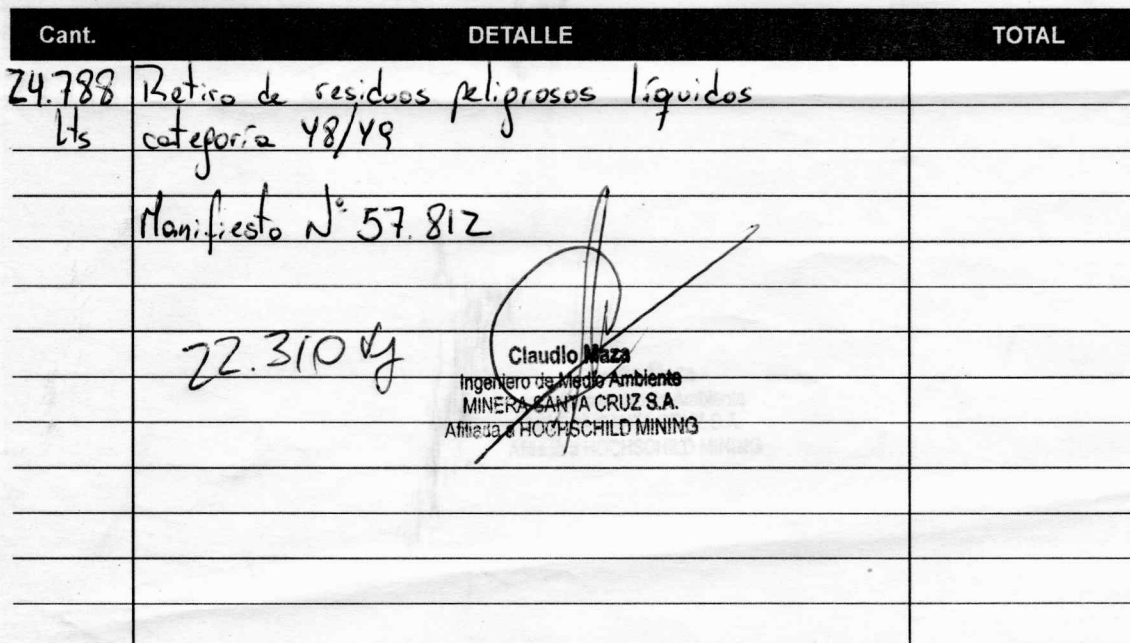 Cant. DETALLE TOTAL
24.788 Retiro de residuos peligrosos líquidos
Lts categoría Y8/Y9
Manifiesto N° 57.812
22.310 Kg
Claudio Maza
Ingeniero de Medio Ambiente
MINERA SANTA CRUZ S.A.
Afiliada a HOCHSCHILD MINING